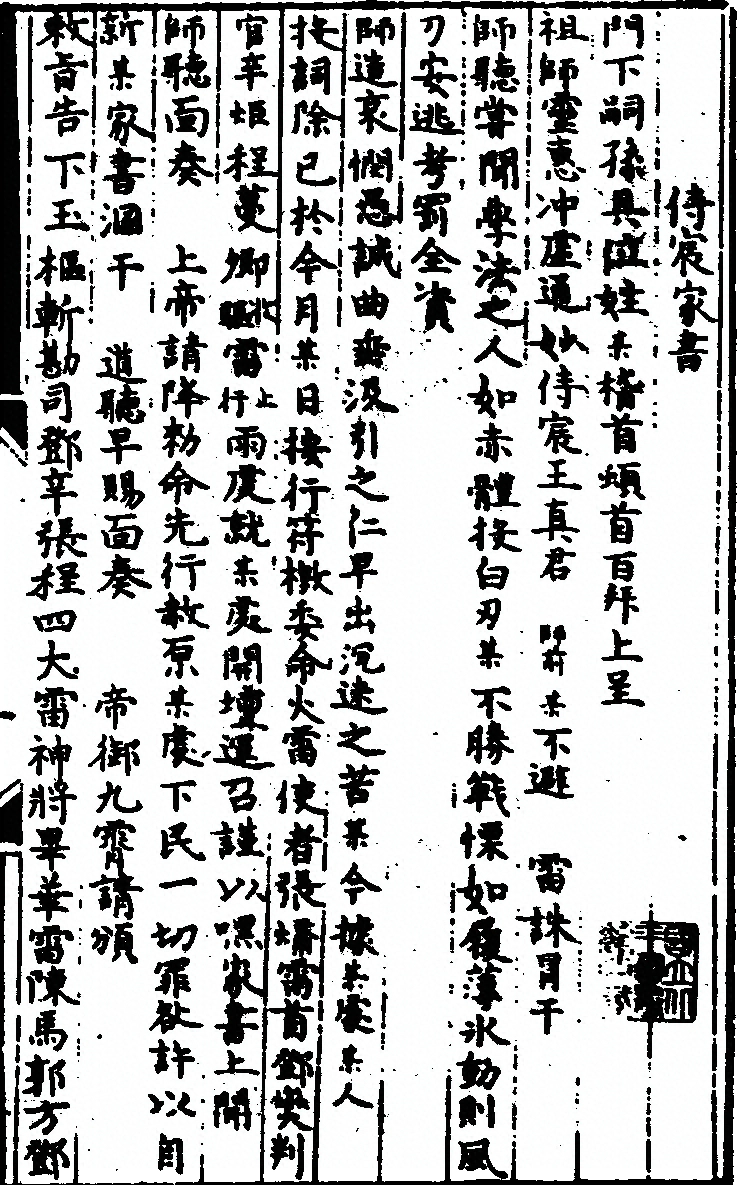 侍宸家書
門下嗣孫具位姓某稽首頓首百拜上呈
祖師靈惠冲虛通妙侍宸王真君 師前某不避 雷誅冐干
師聽嘗聞學法之人如赤體按白刃某不勝戰慄如履薄氷動則風
刀安逃考罰全資
師造哀憫憑誠曲垂汲引之仁早出沉迷之苦某今據某處某人
按詞除已於今月某日接行符檄委命火雷使者張燐雷首鄧燮判
官辛 程 卿 雷行上雨度就某處開壇遥召謹以 家書上聞
師聽面奏 上帝請降勑命先行赦原某處下民一切罪咎許以自
新某家書洞干 道聽早賜面奏 帝御九霄請頒
敕旨告下玉樞斬勘司鄧辛張程四大雷神將畢華雷陳馬郭方鄧